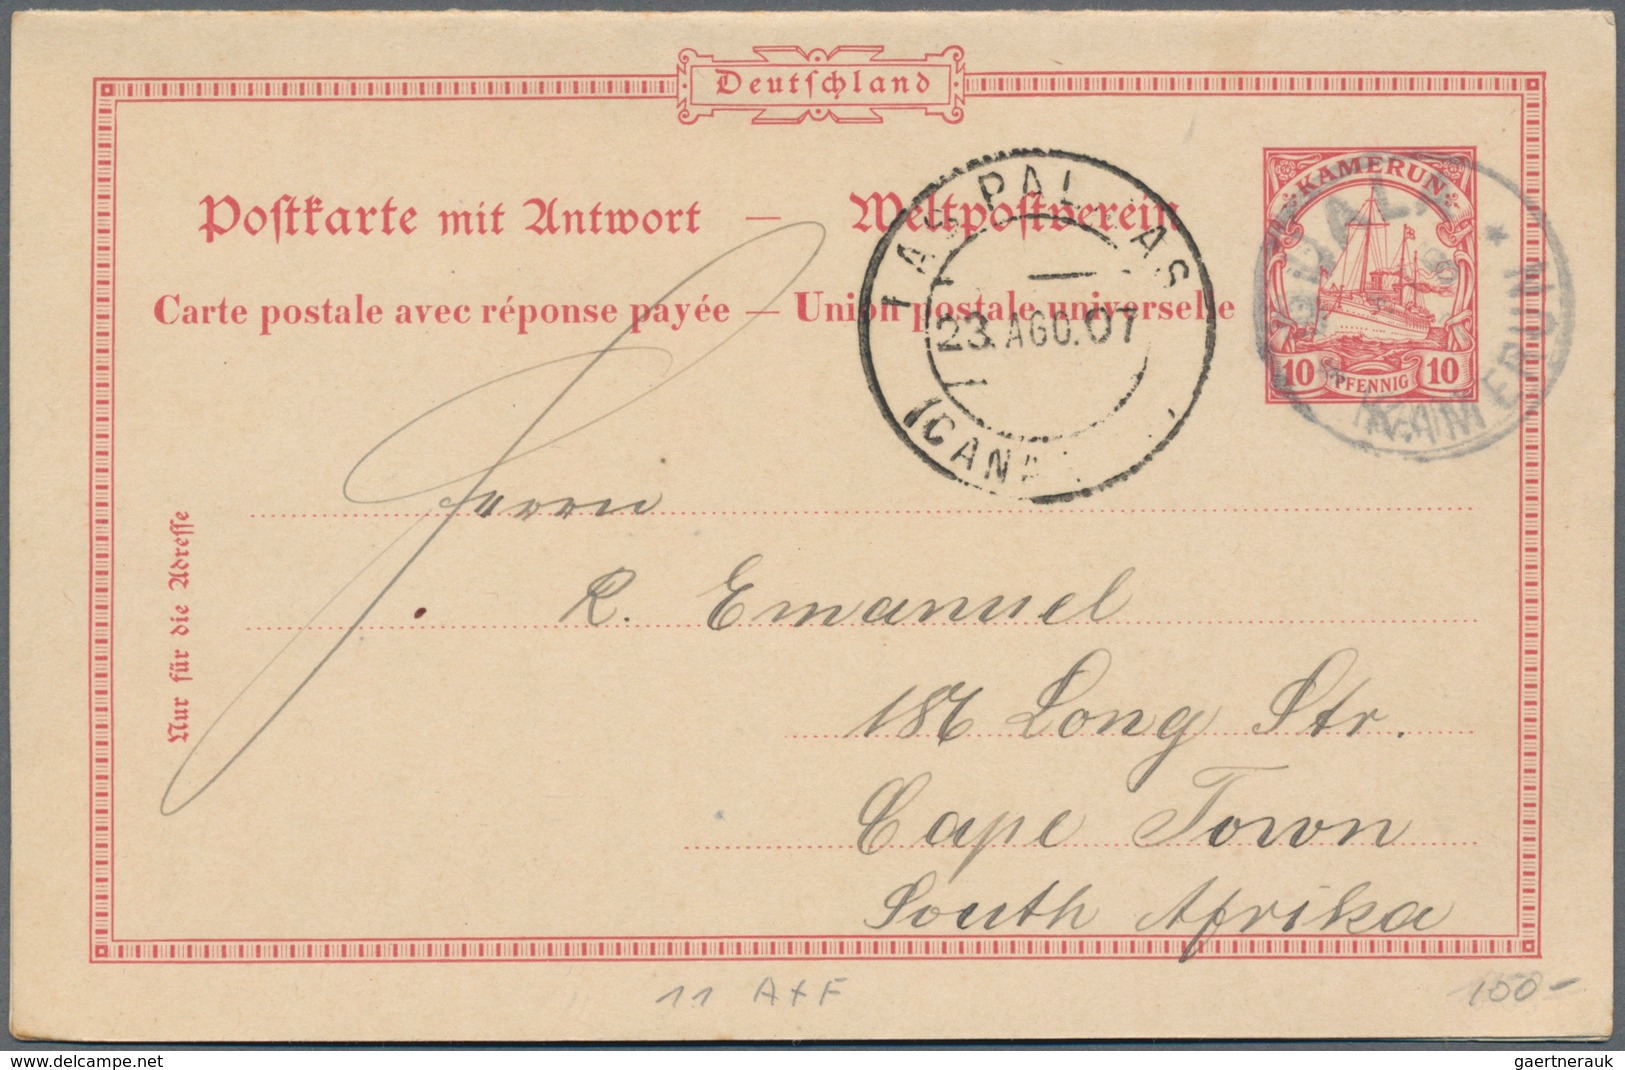 Deutſchland
KAMERUN
10 PFENNIG 10
Poſtkarte mit Antwort — Weltpoſtverein
Carte postale avec réponse payée — Union postale universelle
LAS PALMAS
23. AGO. 07
(CANA
KAMERUN *
Nur für die Adreſſe
Herrn
R. Emanuel
186 Long Str.
Cape Town
South Afrika
11 A+F
100-
delcampe.net
gaertnerauk